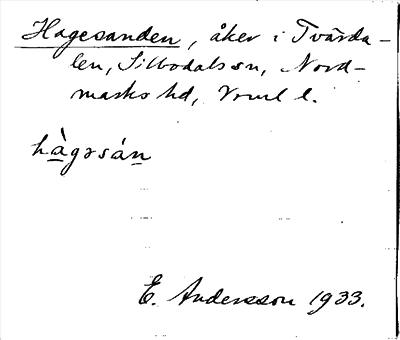 Hagesanden, åker i Tvärda-
len, Silbodals sn, Nord-
marks hd, Vrml l.
hàgəsán
E. Andersson 1933.